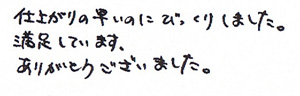 仕上がりの早いのにびっくりしました。
満足しています、
ありがとうございました。